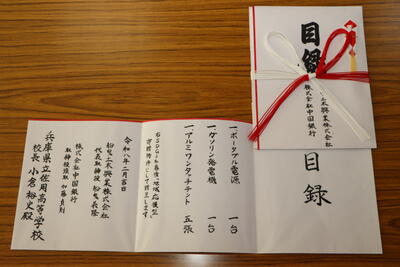 目録
株式会社中国銀行
目録
一、ポータブル電源 一台
一、ガソリン発電機 一台
一、アルミワンタッチテント 五張
右SDGs私募債「地域応援型」
寄贈物件として贈呈します
令和八年二月吉日
松曳土木興業株式会社
代表取締役 松曳長隆
株式会社中国銀行
取締役頭取 加藤貞則
兵庫県立佐用高等学校
校長 小倉裕史殿